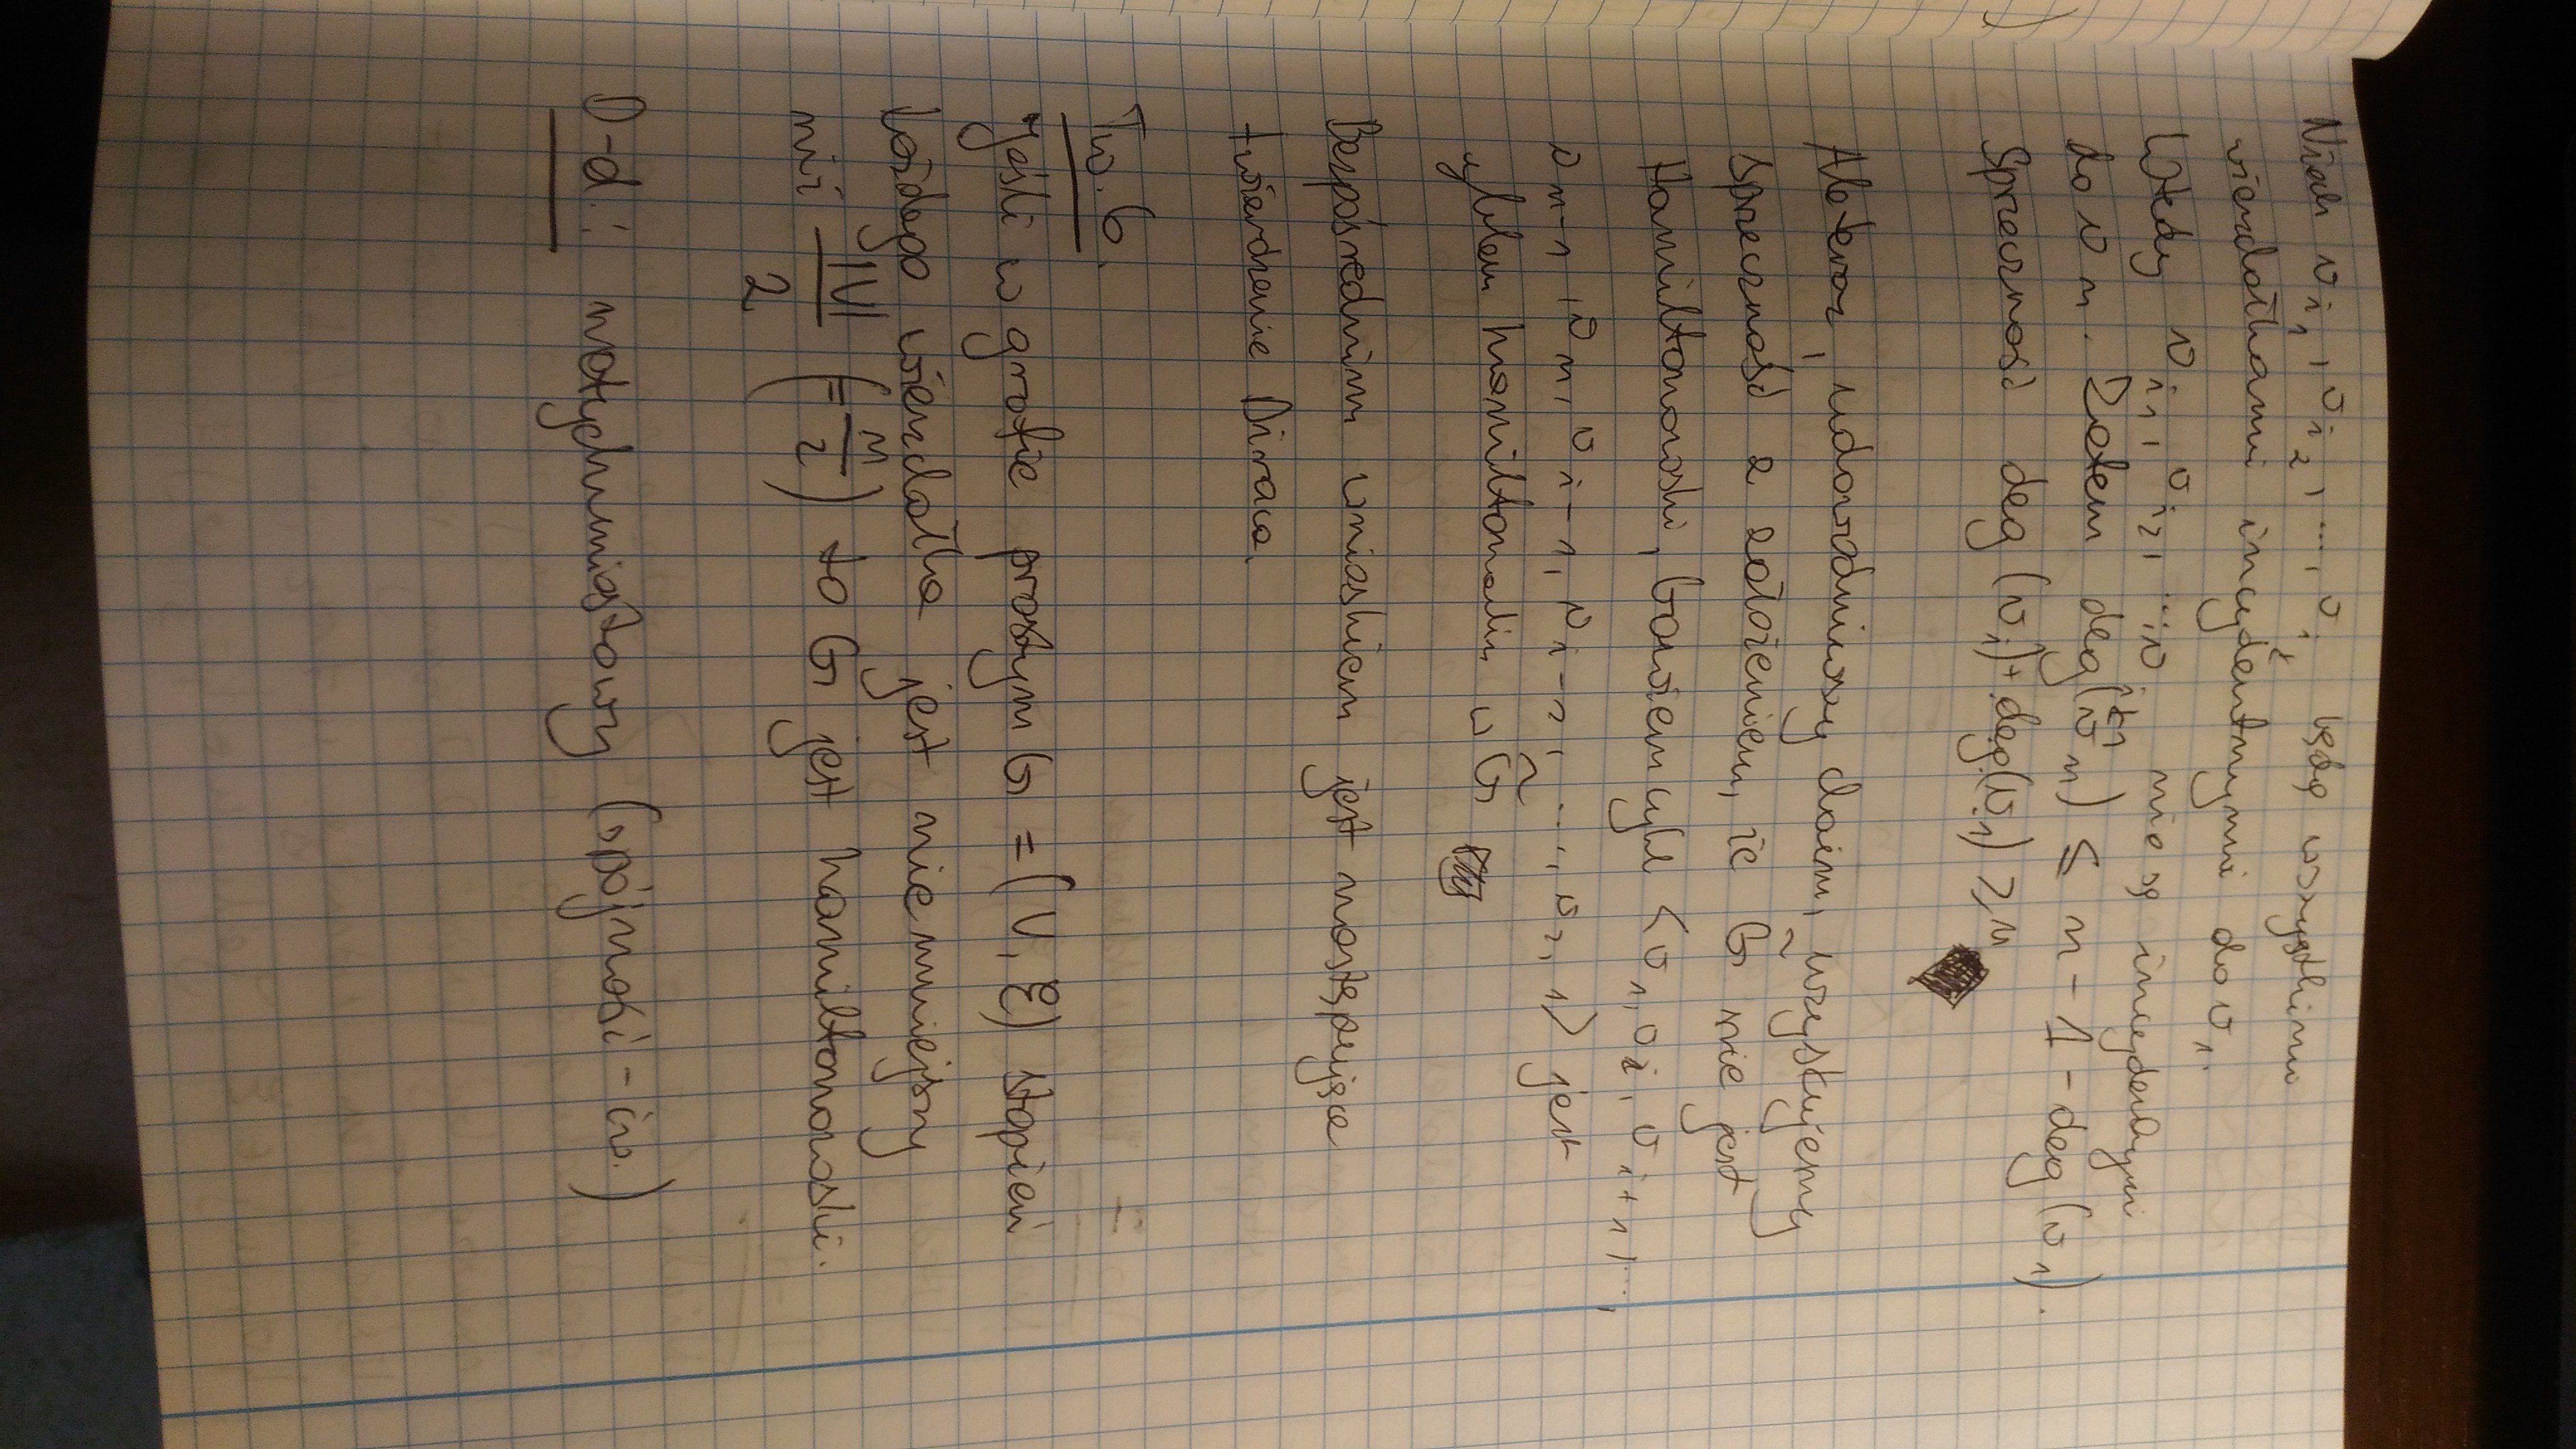 Niech v_{i_1}, v_{i_2}, ..., v_{i_k} będą wszystkimi
wierzchołkami incydentnymi do v_1.
Wtedy v_{i_1}, v_{i_2}, ..., v_{i_{k+1}} nie są incydentnymi
do v_n. Zatem deg(v_n) ≤ n - 1 - deg(v_1).
Sprzeczność deg(v_i) + deg(v_1) ≥ n
Ale teraz, udowodniwszy claim, uzyskujemy
sprzeczność z założeniem, że G̃ nie jest
Hamiltonowski, bowiem cykl <v_1, v_i, v_{i+1}, ...,
v_{n-1}, v_n, v_{i-1}, v_{i-2}, ..., v_2, 1> jest
cyklem hamiltona w G̃
Bezpośrednim wnioskiem jest następujące
twierdzenie Diraca.
Tw. 6.
Jeśli w grafie prostym G = (V, E) stopień
każdego wierzchołka jest niemniejszy
niż |V|/2 (= n/2) to G jest hamiltonowski.
D-d.: natychmiastowy (spójność - ćw.)